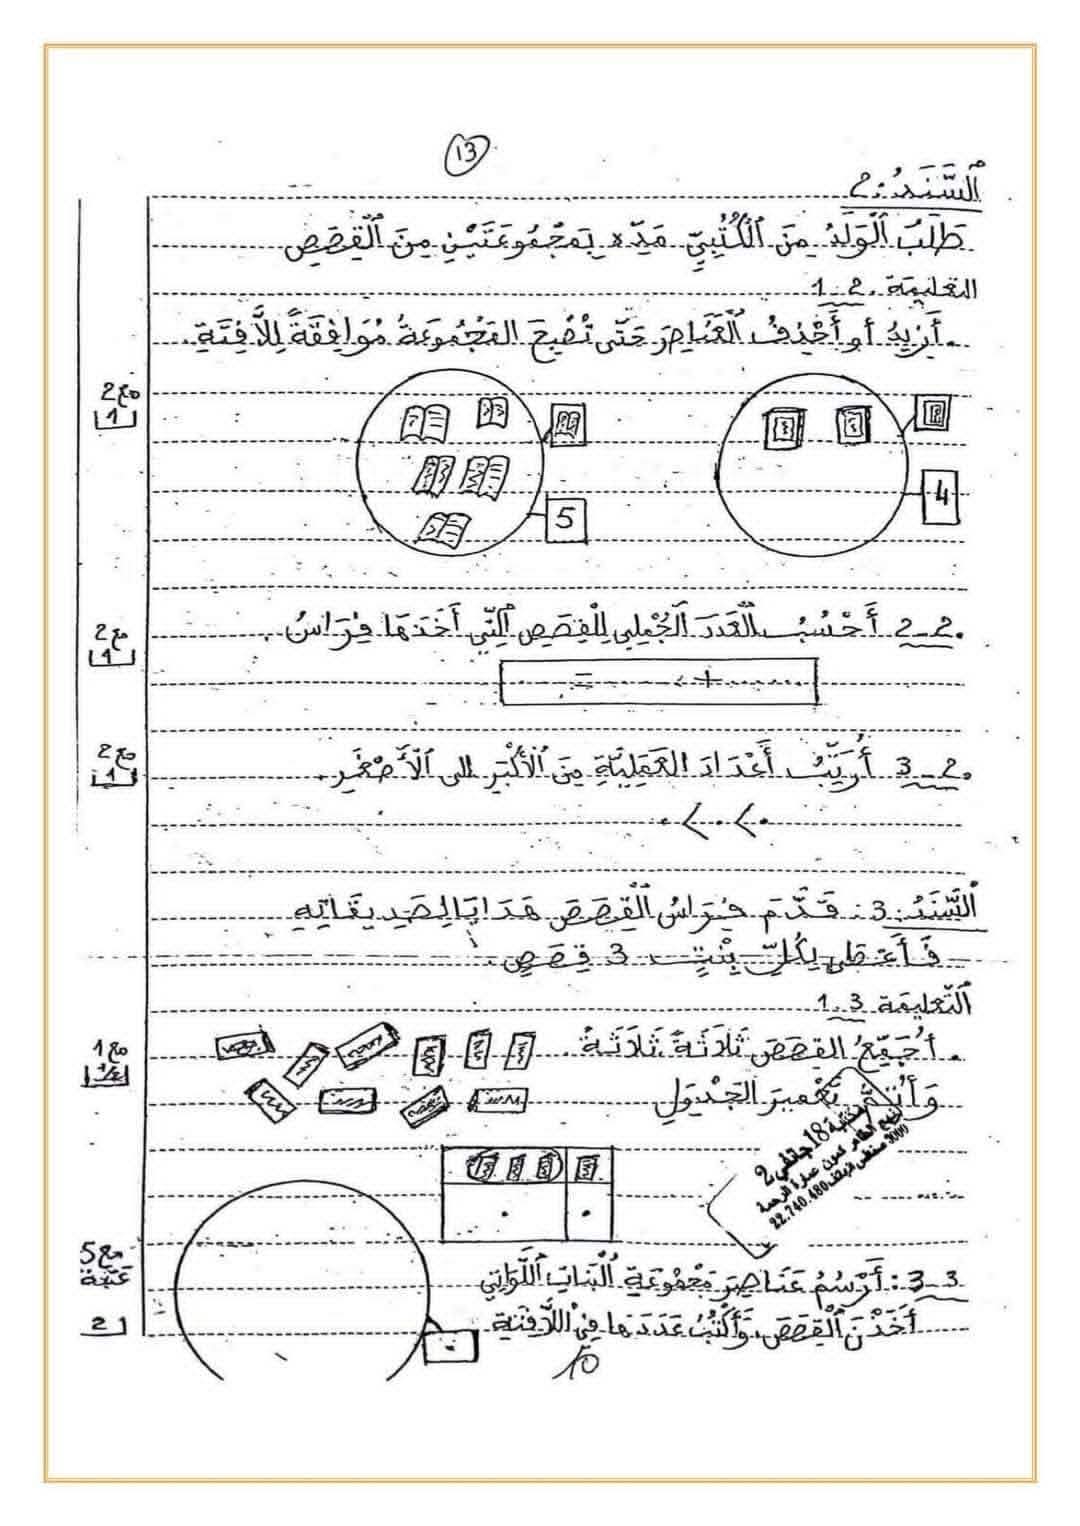 13
السَّنَدُ: 2
طَلَبَ الْوَلَدُ مِنَ الْكُتُبِيِّ مَدَّه بِمَجْمُوعَتَيْنِ مِنَ الْقِصَصِ
التعليمة 2ـ1
أَزِيدُ أو أَحْذِفُ الْعَنَاصِرَ حَتَّى تُصْبِحَ المَجْمُوعَةُ مُوَافِقَةً لِلَّافِتَةِ.
مع2
1
4
5
2ـ2 أَحْسُبُ الْعَدَدَ الْجُمْلِي لِلْقِصَصِ الَّتِي أَخَذَهَا فِرَاسُ.
مع2
1
...... + ...... = ......
2ـ3 أُرَتِّبُ أَعْدَادَ العَمَلِيَّةِ مِنَ الْأَكْبَرِ الى الْأَصْغَرِ.
مع2
1
. > . > .
السَّنَدُ: 3: قَدَّمَ فِرَاسُ الْقِصَصَ هَدَايَا لِصَدِيقَاتِهِ
فَأَعْطَى لِكُلِّ بِنْتٍ 3 قِصَصٍ.
التَّعليمة 3ـ1
. أُجَمِّعُ القِصَصَ ثَلَاثَةً ثَلَاثَةً.
وَأُتِمُّ تَعْمِيرَ الجَدْوَلِ
مع1
مكتبة 18 جانفي 2
نهج الطاهر كمون عمارة الرحمة
3000 صفاقس الهاتف 22.740.480
3ـ3: أَرْسُمُ عَنَاصِرَ مَجْمُوعَةِ الْبَنَاتِ اللَّوَاتِي
أَخَذْنَ الْقِصَصَ، وَأَكْتُبُ عَدَدَهَا فِي اللَّافِتَةِ.
مع5
2
10